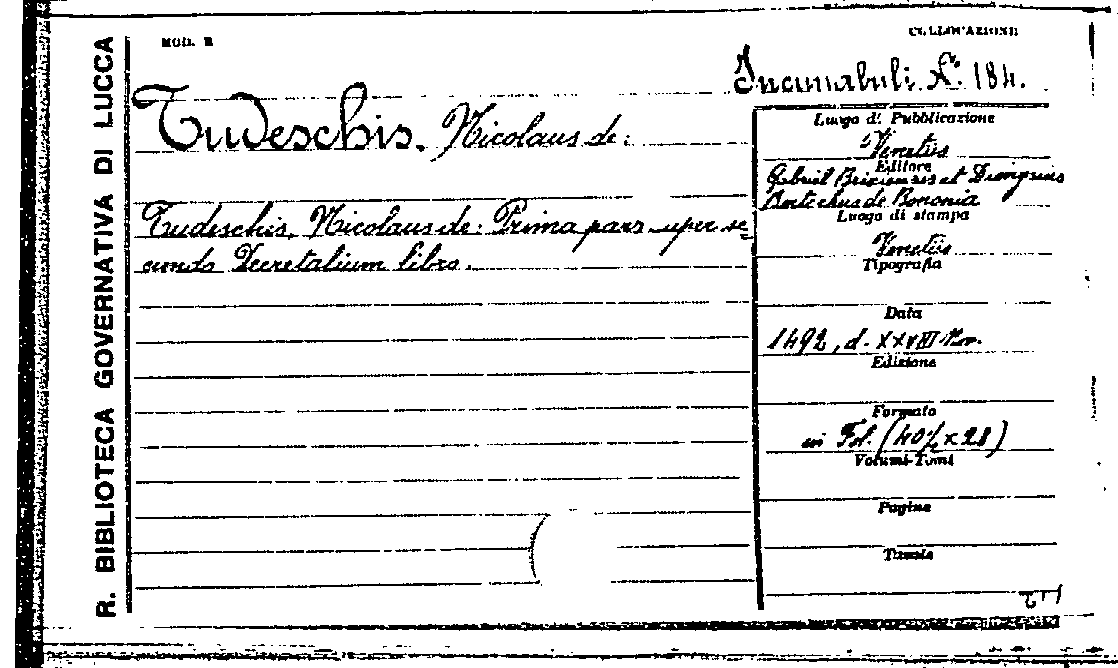 R. BIBLIOTECA GOVERNATIVA DI LUCCA
MOD. B
COLLOCAZIONE
Incunabuli N.º 184.
Tudeschis. Nicolaus de:
Tudeschis, Nicolaus de: Prima pars super se=
cundo Decretalium libro.
Luogo di Pubblicazione
Venetiis
Editore
Gabriel Brixiensis et Dionysius
Bertochus de Bononia
Luogo di stampa
Venetiis
Tipografia
Data
1492, d. XXVIII Nov.
Edizione
Formato
in Fol. (40½ x 28)
Volumi-Tomi
Pagine
Tavole